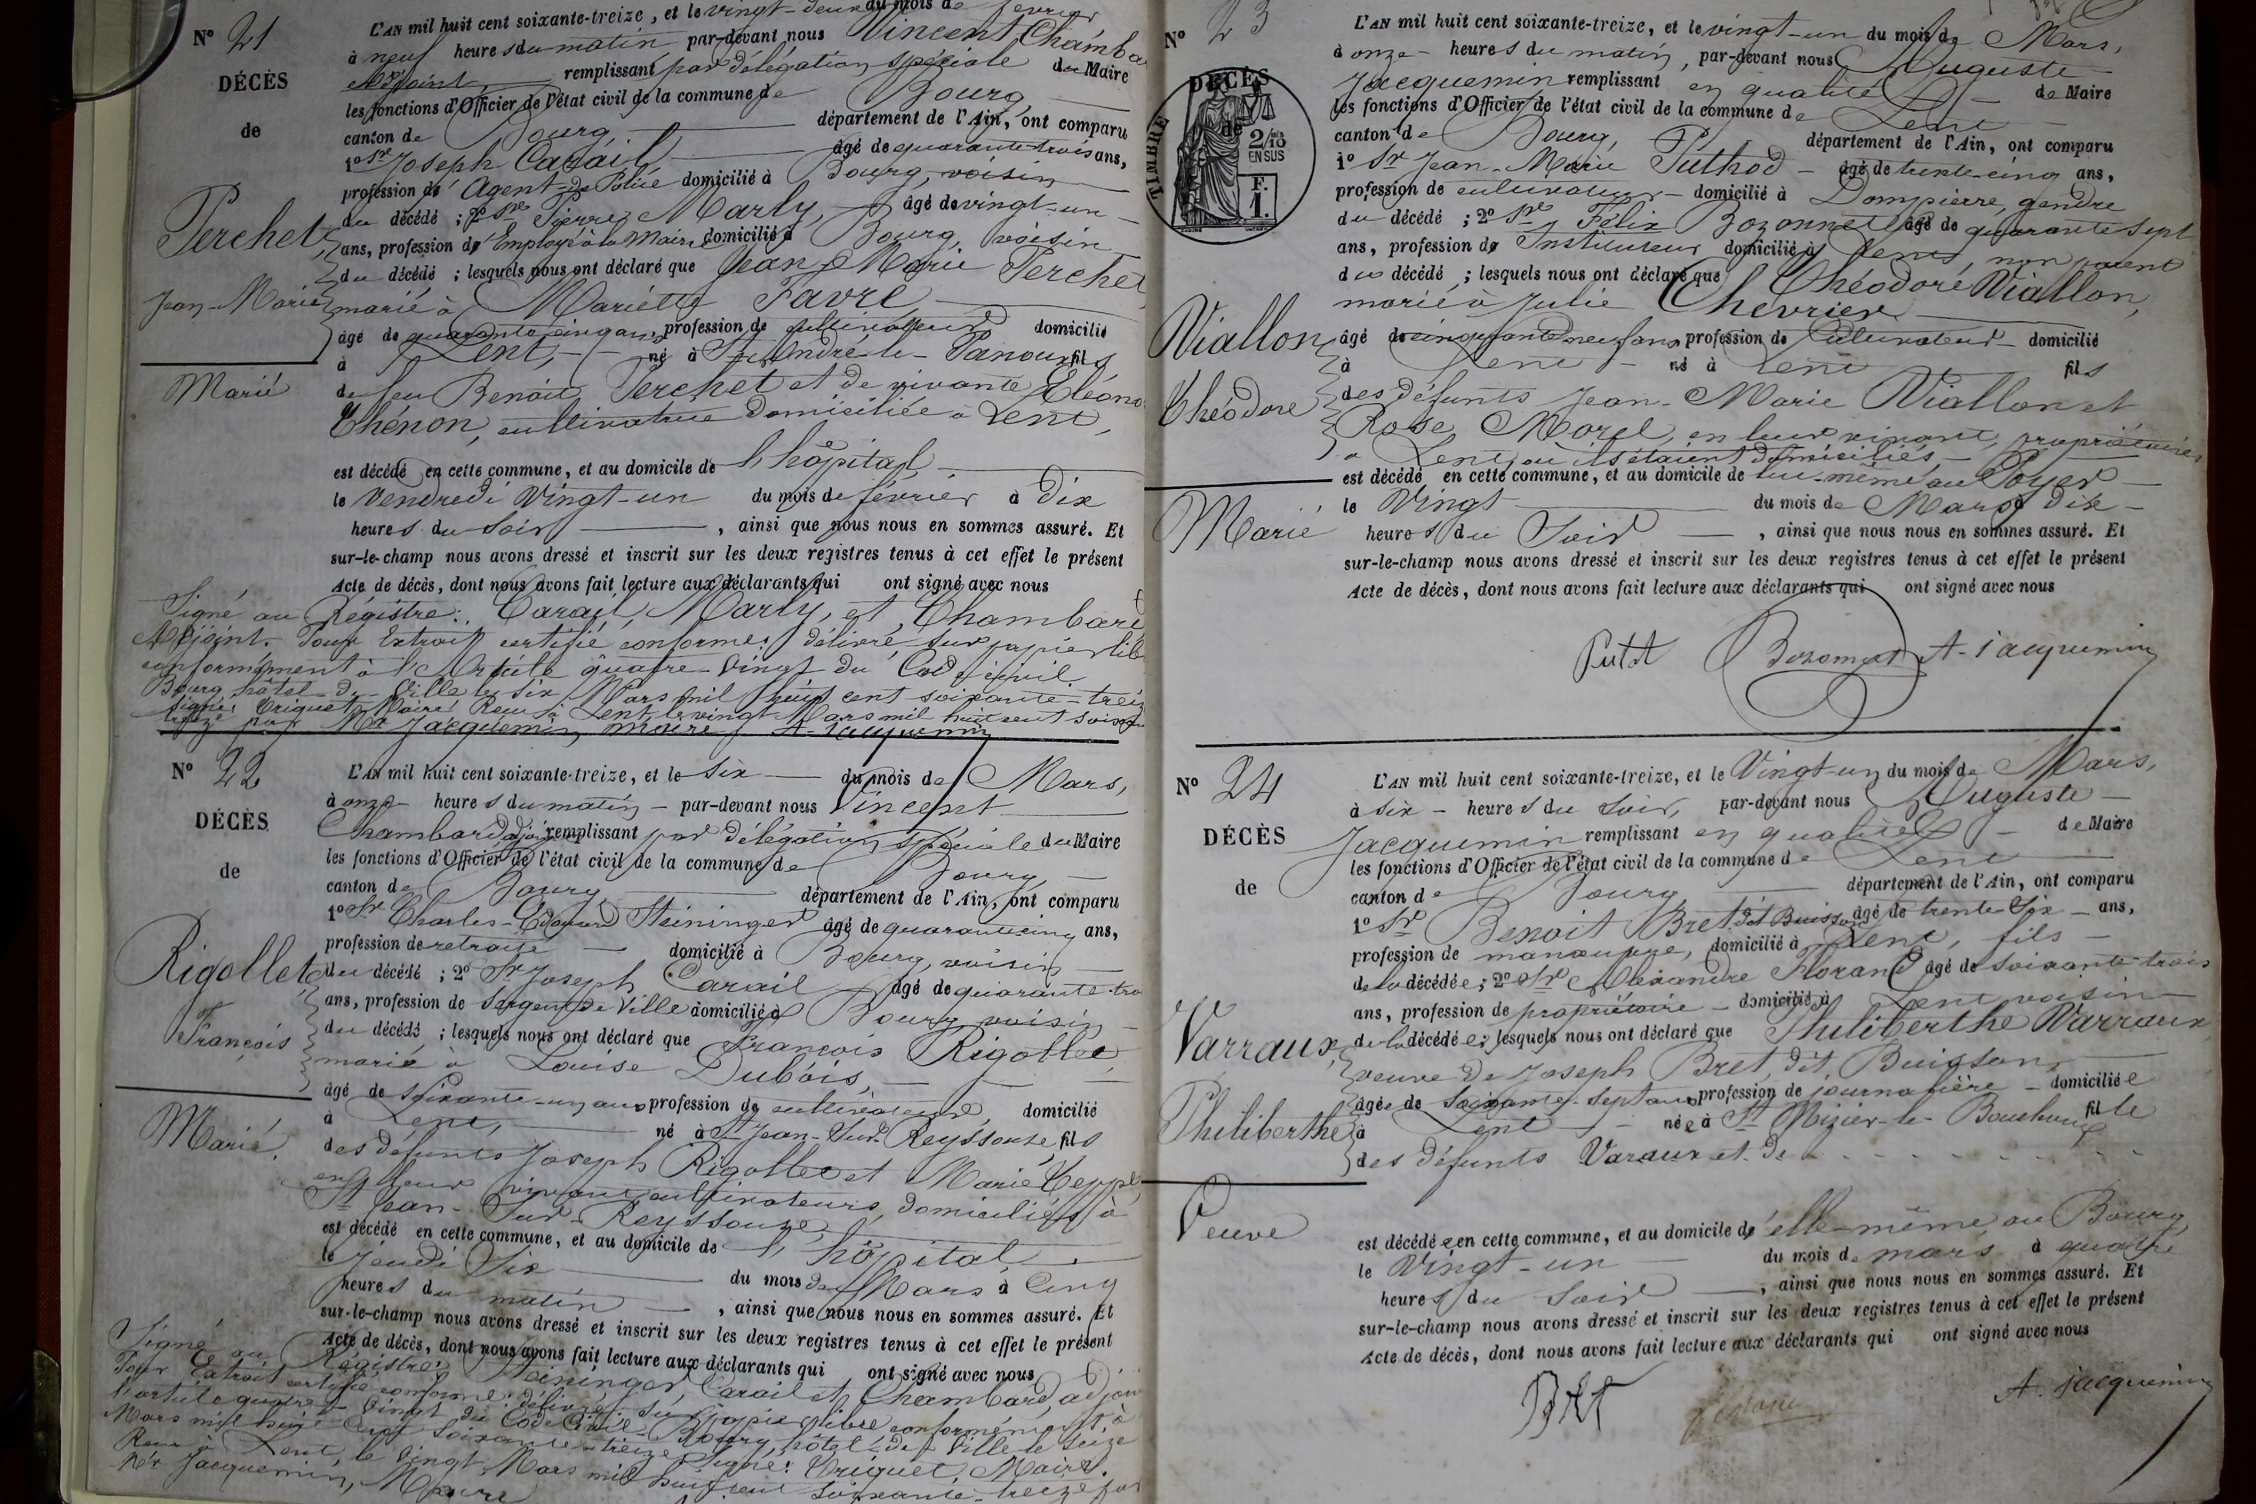 N° 21
DÉCÈS
de
Perchet
Jean-Marie
Marié
L'AN mil huit cent soixante-treize, et le vingt-deux du mois de février
à neuf heures du matin par-devant nous Vincent Chambard
adjoint remplissant par délégation spéciale du Maire
les fonctions d'Officier de l'état civil de la commune de Bourg
canton de Bourg, département de l'Ain, ont comparu
1° Sr Joseph Carail âgé de quarante-trois ans,
profession d' Agent de Police domicilié à Bourg, voisin
du décédé ; 2° Sr Pierre Marly, âgé de vingt-un
ans, profession d' Employé à la Mairie domicilié à Bourg, voisin
du décédé ; lesquels nous ont déclaré que Jean Marie Perchet
marié à Mariette Favre
âgé de quarante cinq ans, profession de cultivateur domicilié
à Lent, né à St André-le-Panoux fils
de feu Benoit Perchet et de vivante Eléono
Thénon, cultivatrice domiciliée à Lent,
est décédé en cette commune, et au domicile de l'hôpital
le Vendredi Vingt-un du mois de février à dix
heures du soir, ainsi que nous nous en sommes assuré. Et
sur-le-champ nous avons dressé et inscrit sur les deux registres tenus à cet effet le présent
Acte de décès, dont nous avons fait lecture aux déclarants qui ont signé avec nous
Signé au Régistre : Carail, Marly, et Chambard
Adjoint. Pour Extrait certifié conforme : délivré sur papier lib
conformément à l'Article quatre-vingt du Code civil.
Bourg, hôtel-de-Ville le six Mars mil huit cent soixante-trei
signé : Triquet, Maire. Reçu à Lent, le vingt Mars mil huit cent soixan
treize par Mr Jacquemin, maire A. Jacquemin
N° 22
DÉCÈS
de
Rigollet
François
Marié.
L'AN mil huit cent soixante-treize, et le six du mois de Mars,
à onze heures du matin par-devant nous Vincent
Chambard adjoint remplissant par délégation spéciale du Maire
les fonctions d'Officier de l'état civil de la commune de Bourg
canton de Bourg département de l'Ain, ont comparu
1° Sr Charles-Edouard Steininger âgé de quarante cinq ans,
profession de retraité domicilié à Bourg, voisin
du décédé ; 2° Sr Joseph Carail âgé de quarante-tro
ans, profession de Sergent de Ville domicilié à Bourg, voisin
du décédé ; lesquels nous ont déclaré que François Rigollet
marié à Louise Dubois,
âgé de soixante-un ans profession de cultivateur, domicilié
à Lent, né à St Jean-Sur-Reyssouze, fils
des défunts Joseph Rigollet et Marie Teppe
en leur vivant cultivateurs, domiciliés à
St Jean-Sur-Reyssouze,
est décédé en cette commune, et au domicile de l'hôpital
le Jeudi Six du mois de Mars à Cinq
heures du matin, ainsi que nous nous en sommes assuré. Et
sur-le-champ nous avons dressé et inscrit sur les deux registres tenus à cet effet le présent
Acte de décès, dont nous avons fait lecture aux déclarants qui ont signé avec nous
Signé au Régistre : Steininger, Carail et Chambard, adjoin
Pour Extrait certifié conforme : délivré sur papier libre conformément à
l'article quatre-vingt du Code Civil. Bourg, hôtel-de-Ville le seize
Mars mil huit cent soixante-treize Signé : Triquet, Maire.
Reçu à Lent, le vingt Mars mil huit cent soixante-treize par
Mr Jacquemin, Maire
N° 23
DÉCÈS
de
TIMBRE
2/10
EN SUS
F.
1.
Viallon
Théodore
Marié
L'AN mil huit cent soixante-treize, et le vingt-un du mois de Mars,
à onze heures du matin, par-devant nous Auguste
Jacquemin remplissant en qualité de Maire
les fonctions d'Officier de l'état civil de la commune de Lent
canton de Bourg, département de l'Ain, ont comparu
1° Sr Jean-Marie Puthod âgé de trente-cinq ans,
profession de cultivateur domicilié à Dompierre, gendre
du décédé ; 2° Sr Félix Bozonnet âgé de quarante sept
ans, profession d' Instituteur domicilié à Lent, non parent
du décédé ; lesquels nous ont déclaré que Théodore Viallon,
marié à Julie Chevrier
âgé de cinquante neuf ans profession de Cultivateur domicilié
à Lent né à Lent fils
des défunts Jean-Marie Viallon et
Rose Morel, en leur vivant, propriétaires
à Lent, où ils étaient domiciliés
est décédé en cette commune, et au domicile de lui-même au Poyer
le Vingt du mois de Mars à dix
heures du Soir, ainsi que nous nous en sommes assuré. Et
sur-le-champ nous avons dressé et inscrit sur les deux registres tenus à cet effet le présent
Acte de décès, dont nous avons fait lecture aux déclarants qui ont signé avec nous
Bozonnet A. Jacquemin
N° 24
DÉCÈS
de
Varraux,
Philiberthe
Veuve
L'AN mil huit cent soixante-treize, et le Vingt-un du mois de Mars,
à six heures du soir, par-devant nous Auguste
Jacquemin remplissant en qualité de Maire
les fonctions d'Officier de l'état civil de la commune de Lent
canton de Bourg département de l'Ain, ont comparu
1° Sr Benoit Bret dit Buisson âgé de trente-six ans,
profession de manœuvre, domicilié à Lent, fils
de la décédée ; 2° Sr Alexandre Florand âgé de soixante-trois
ans, profession de propriétaire domicilié à Lent, voisin
de la décédée ; lesquels nous ont déclaré que Philiberthe Varraux
veuve de Joseph Bret dit Buisson,
âgée de soixante-sept ans profession de journalière domiciliée
à Lent née à St Nizier-le-Bouchoux fille
des défunts Varaux et de
est décédée en cette commune, et au domicile d'elle-même au Bourg,
le Vingt-un du mois de mars à quatre
heures du Soir, ainsi que nous nous en sommes assuré. Et
sur-le-champ nous avons dressé et inscrit sur les deux registres tenus à cet effet le présent
Acte de décès, dont nous avons fait lecture aux déclarants qui ont signé avec nous
Bret A. Jacquemin